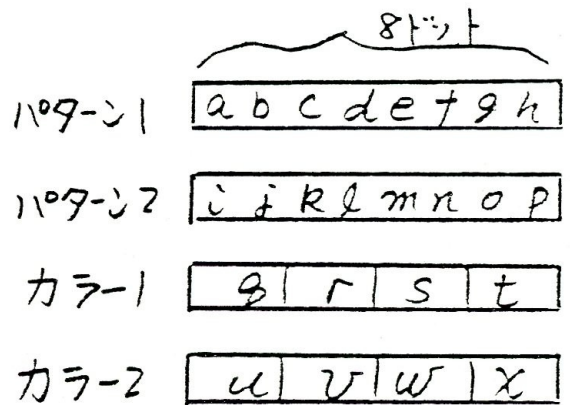 8ドット
パターン1 a b c d e f g h
パターン2 i j k l m n o p
カラー1 q r s t
カラー2 u v w x